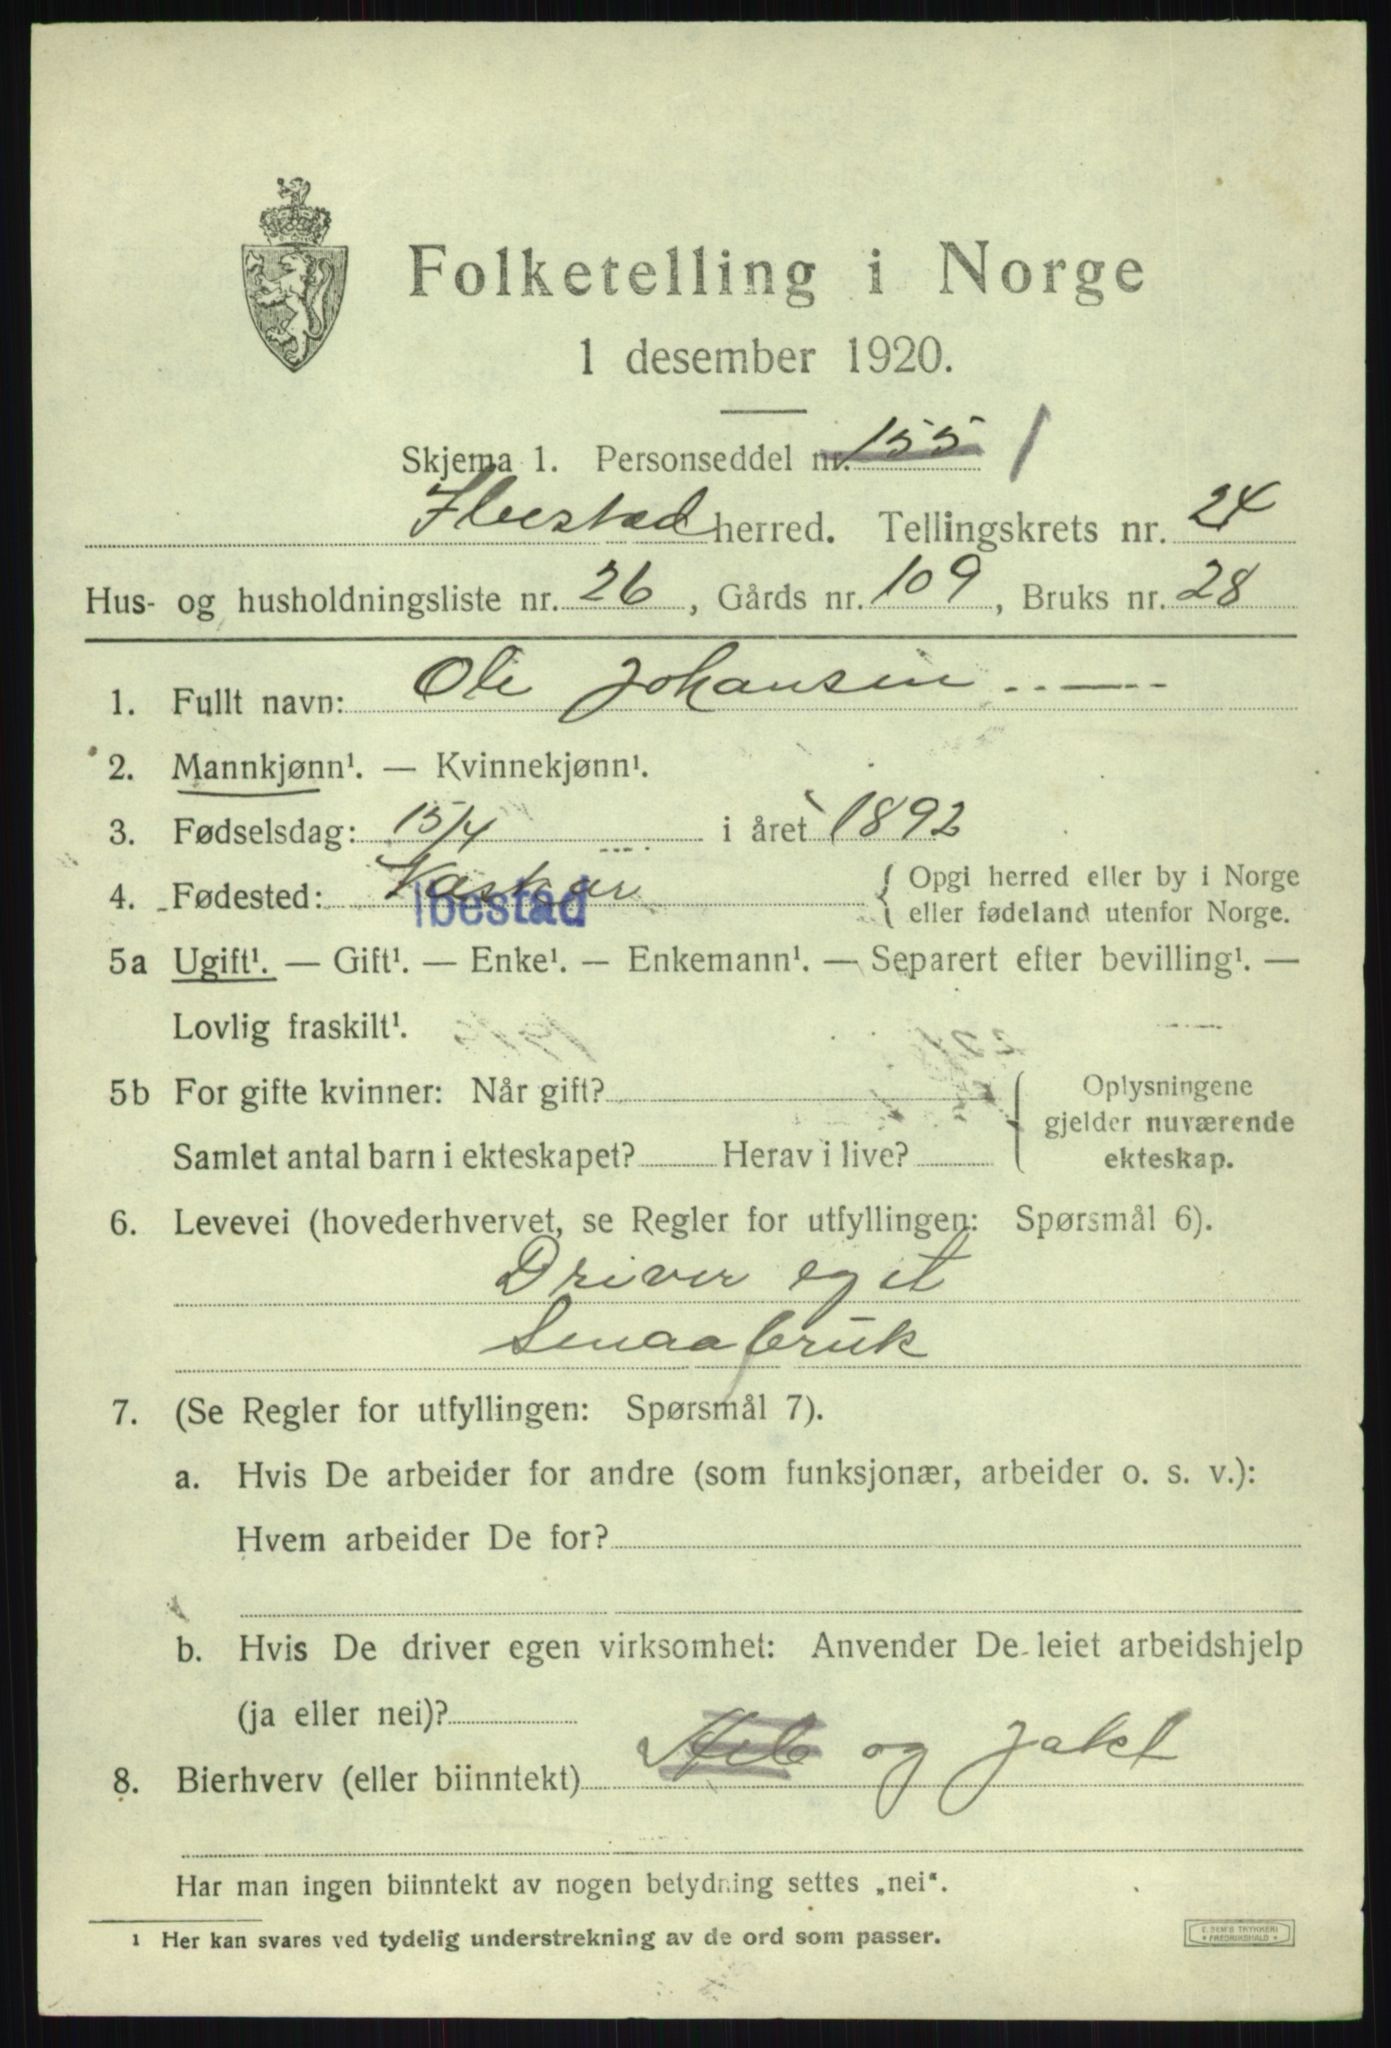 Folketelling i Norge
1 desember 1920.
Skjema 1. Personseddel nr. 155 1
Ibestad herred. Tellingskrets nr. 24
Hus- og husholdningsliste nr. 26, Gårds nr. 109, Bruks nr. 28
1. Fullt navn: Ole Johansen
2. Mannkjønn¹. — Kvinnekjønn¹.
3. Fødselsdag: 15/4 i året 1892
4. Fødested: Ibestad { Opgi herred eller by i Norge
eller fødeland utenfor Norge.
5a Ugift¹. — Gift¹. — Enke¹. — Enkemann¹. — Separert efter bevilling¹. —
Lovlig fraskilt¹.
5b For gifte kvinner: Når gift? Oplysningene
gjelder nuværende
Samlet antal barn i ekteskapet? Herav i live? ekteskap.
6. Levevei (hovederhvervet, se Regler for utfyllingen: Spørsmål 6).
Driver eget
Smaabruk
7. (Se Regler for utfyllingen: Spørsmål 7).
a. Hvis De arbeider for andre (som funksjonær, arbeider o. s. v.):
Hvem arbeider De for?
b. Hvis De driver egen virksomhet: Anvender De leiet arbeidshjelp
(ja eller nei)?
8. Bierhverv (eller biinntekt) og Jakt
Har man ingen biinntekt av nogen betydning settes „nei".
1 Her kan svares ved tydelig understrekning av de ord som passer.
E. SEM'S TRYKKERI
FREDRIKSHALD